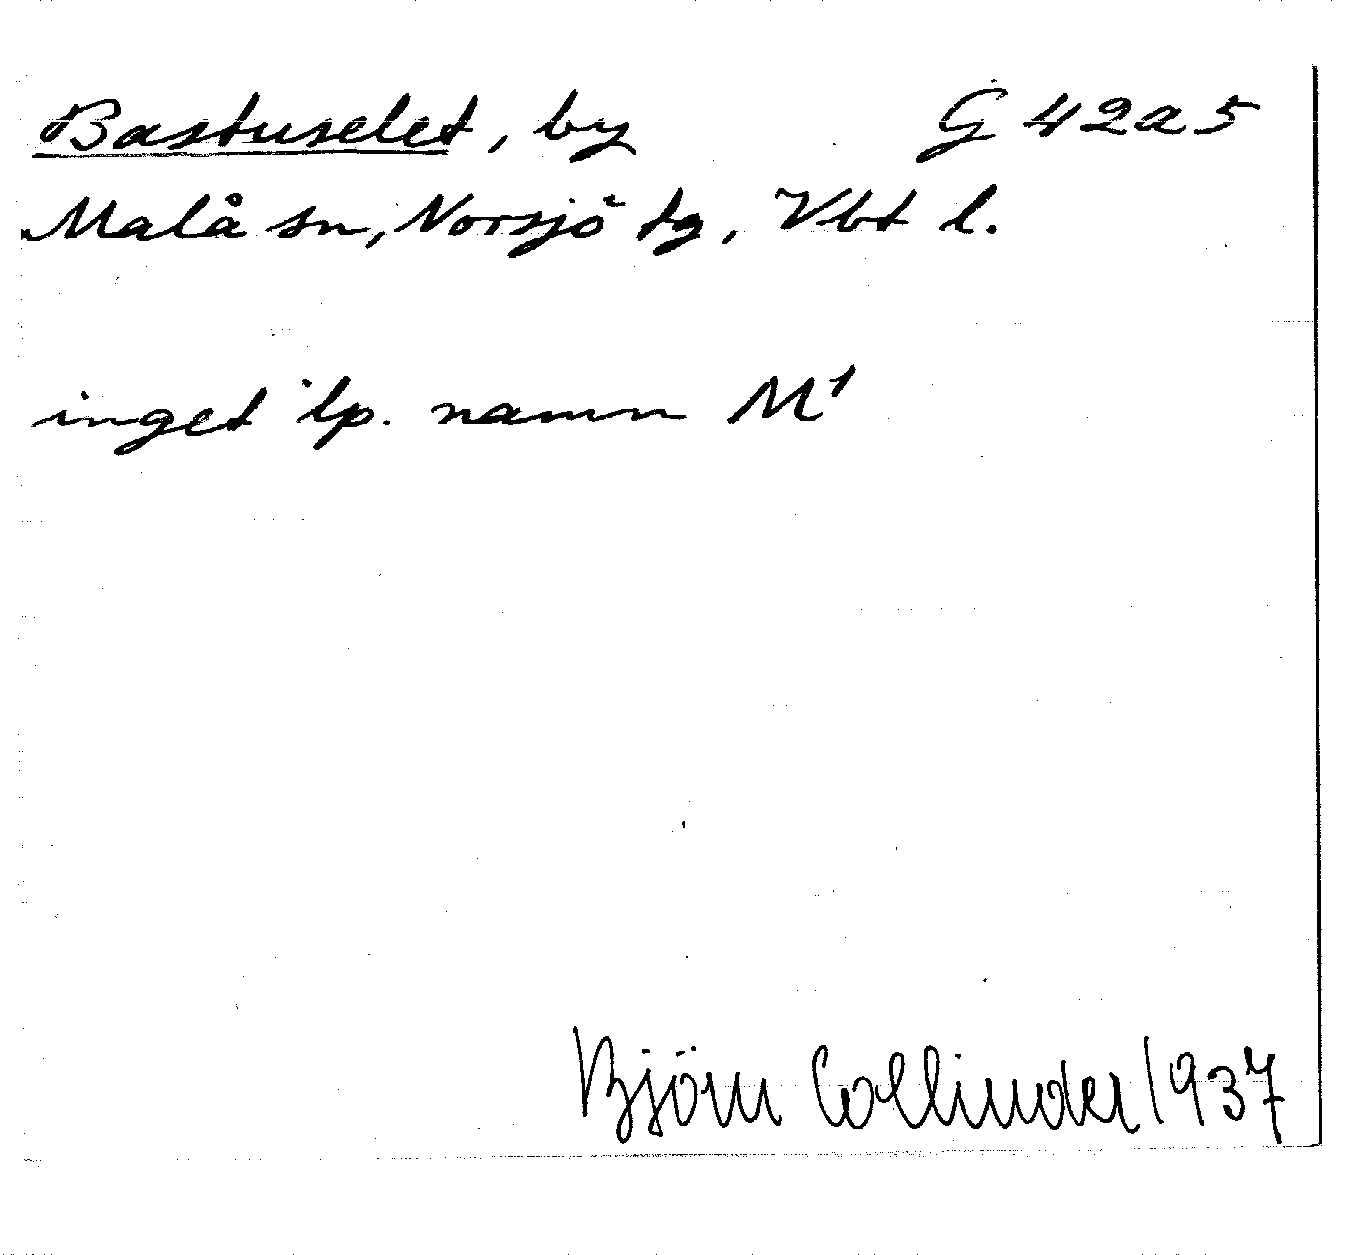 Bastuselet, by G 42a5
Malå sn, Norsjö tg, Vbt l.
inget lp. namn M1
Björn Collinder 1937